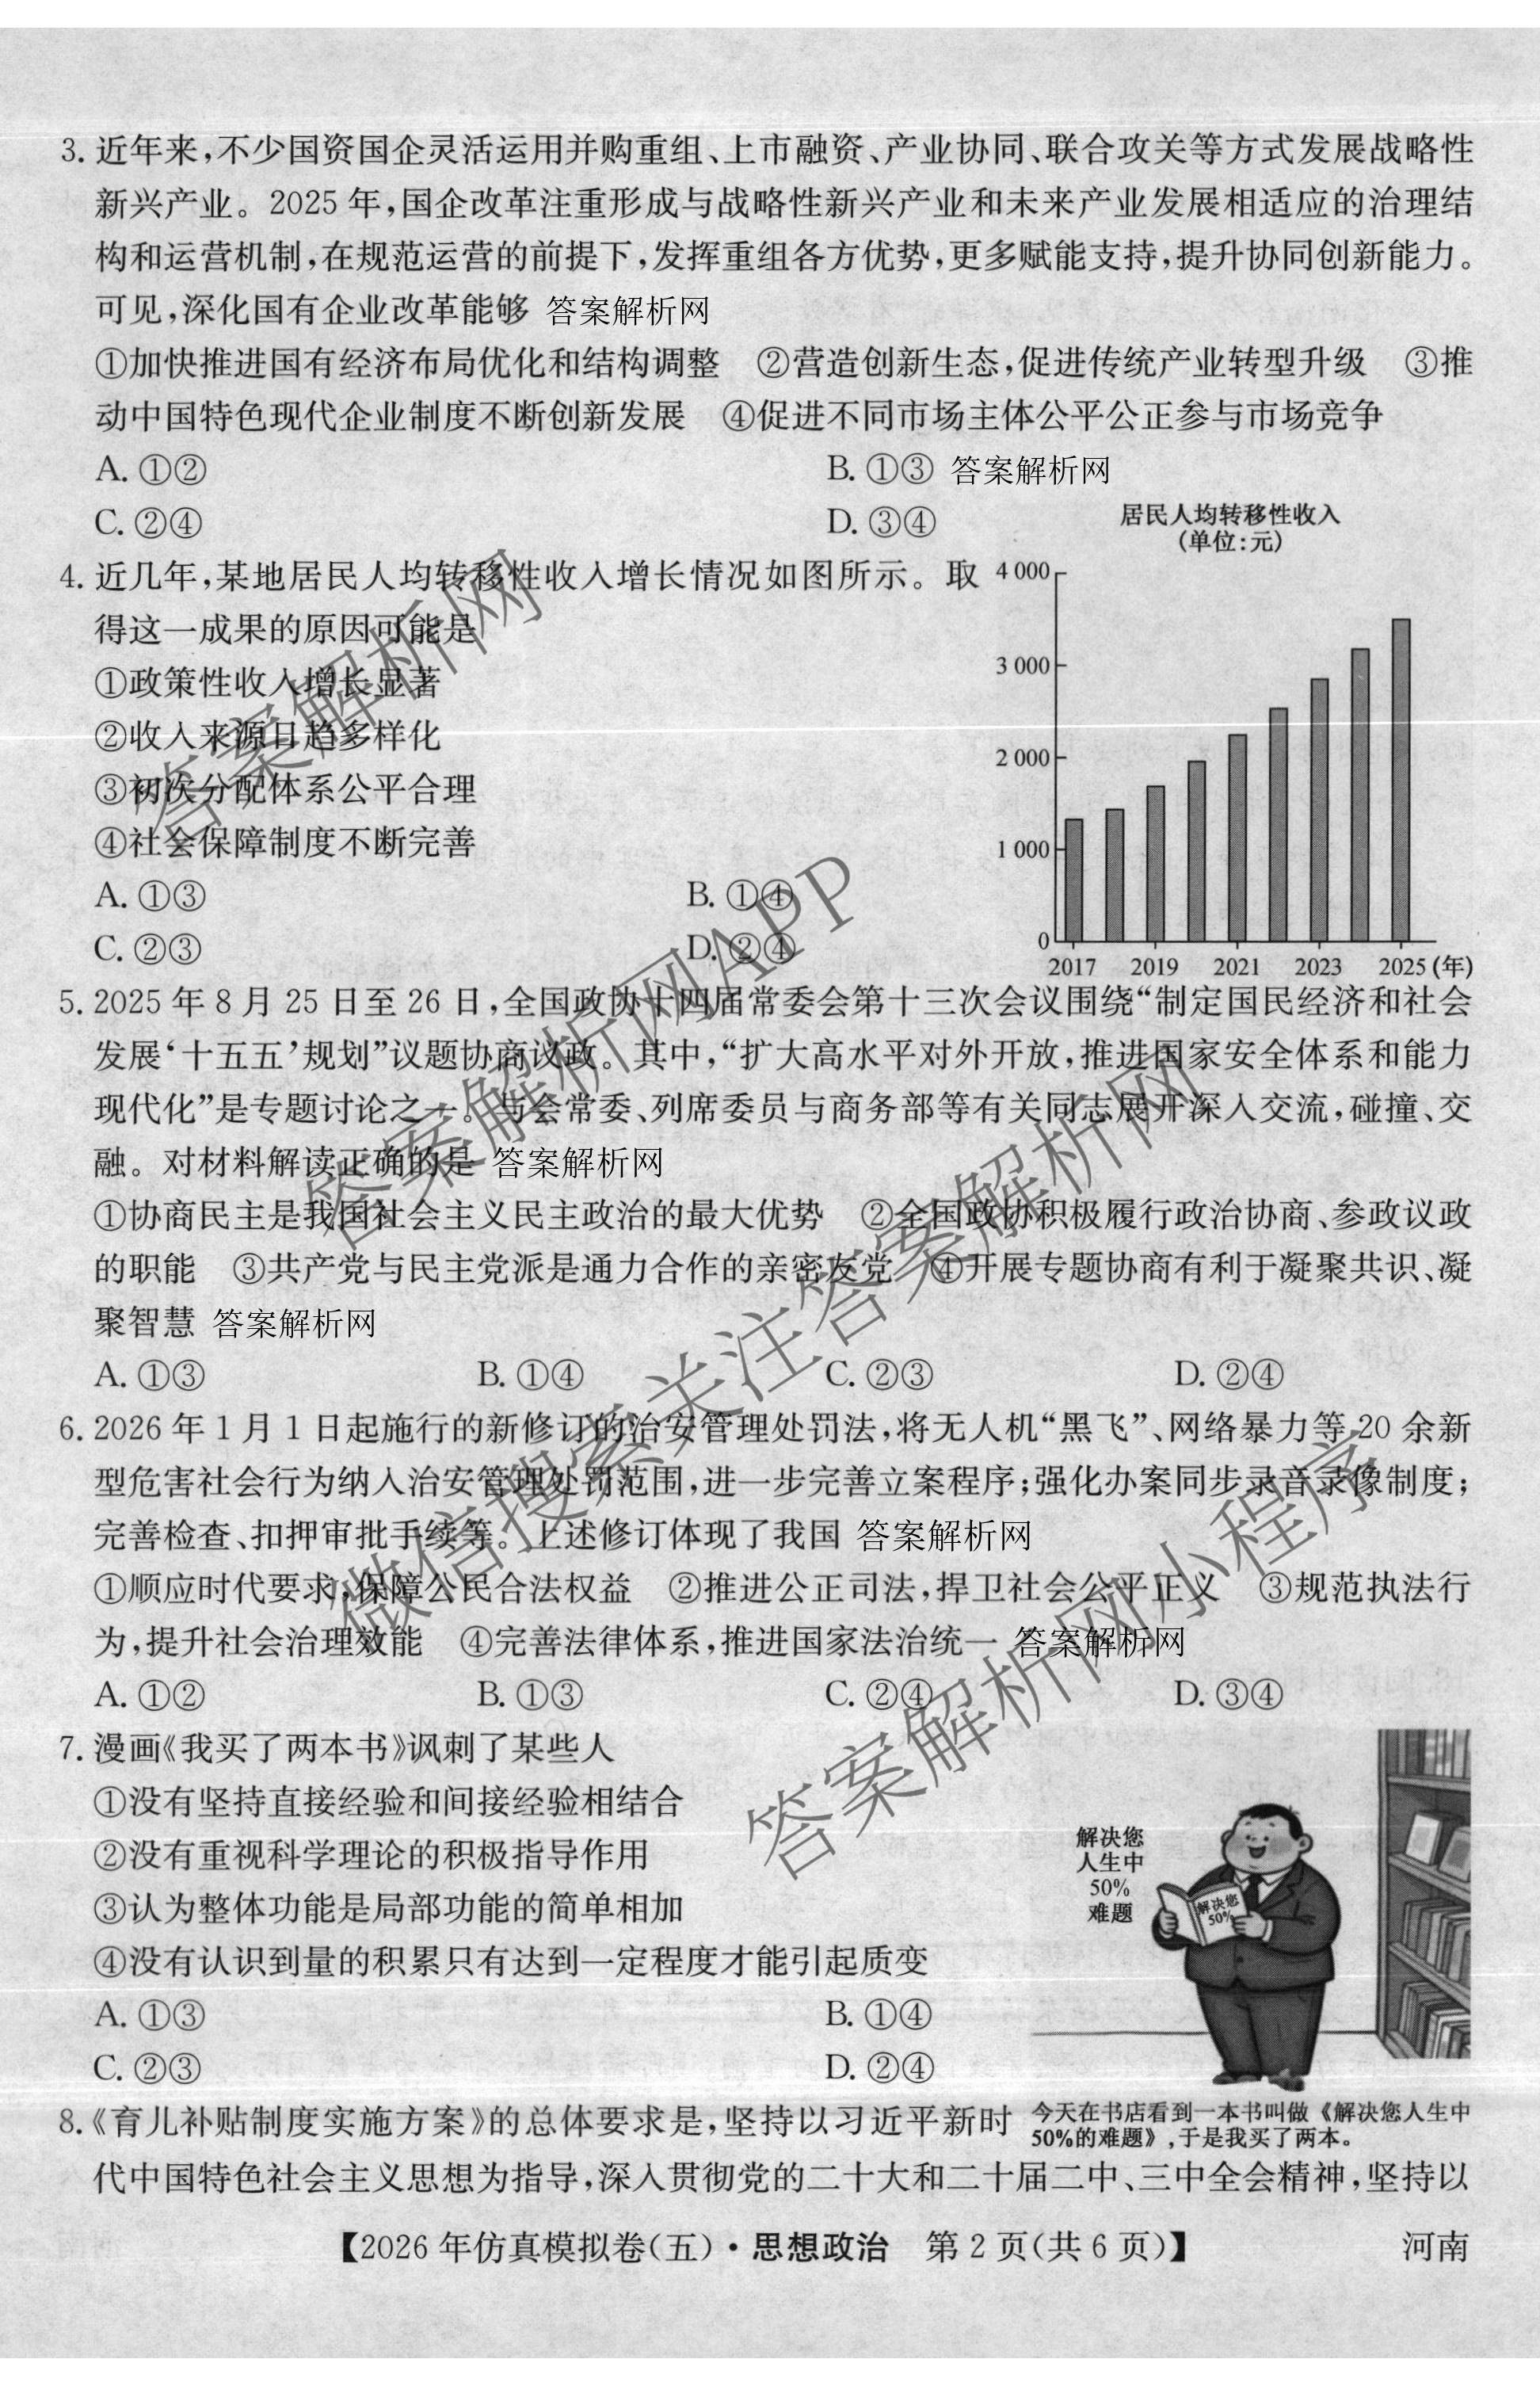 3. 近年来,不少国资国企灵活运用并购重组、上市融资、产业协同、联合攻关等方式发展战略性
新兴产业。2025 年,国企改革注重形成与战略性新兴产业和未来产业发展相适应的治理结
构和运营机制,在规范运营的前提下,发挥重组各方优势,更多赋能支持,提升协同创新能力。
可见,深化国有企业改革能够 答案解析网
①加快推进国有经济布局优化和结构调整 ②营造创新生态,促进传统产业转型升级 ③推
动中国特色现代企业制度不断创新发展 ④促进不同市场主体公平公正参与市场竞争
A. ①② B. ①③ 答案解析网
C. ②④ D. ③④
4. 近几年,某地居民人均转移性收入增长情况如图所示。取
得这一成果的原因可能是
①政策性收入增长显著
②收入来源日趋多样化
③初次分配体系公平合理
④社会保障制度不断完善
A. ①③ B. ①④
C. ②③ D. ②④
居民人均转移性收入
(单位:元)
4 000
3 000
2 000
1 000
0
2017 2019 2021 2023 2025 (年)
5. 2025 年 8 月 25 日至 26 日,全国政协十四届常委会第十三次会议围绕“制定国民经济和社会
发展‘十五五’规划”议题协商议政。其中,“扩大高水平对外开放,推进国家安全体系和能力
现代化”是专题讨论之一。与会常委、列席委员与商务部等有关同志展开深入交流,碰撞、交
融。对材料解读正确的是 答案解析网
①协商民主是我国社会主义民主政治的最大优势 ②全国政协积极履行政治协商、参政议政
的职能 ③共产党与民主党派是通力合作的亲密友党 ④开展专题协商有利于凝聚共识、凝
聚智慧 答案解析网
A. ①③ B. ①④ C. ②③ D. ②④
6. 2026 年 1 月 1 日起施行的新修订的治安管理处罚法,将无人机“黑飞”、网络暴力等 20 余新
型危害社会行为纳入治安管理处罚范围,进一步完善立案程序;强化办案同步录音录像制度;
完善检查、扣押审批手续等。上述修订体现了我国 答案解析网
①顺应时代要求,保障公民合法权益 ②推进公正司法,捍卫社会公平正义 ③规范执法行
为,提升社会治理效能 ④完善法律体系,推进国家法治统一 答案解析网
A. ①② B. ①③ C. ②④ D. ③④
7. 漫画《我买了两本书》讽刺了某些人
①没有坚持直接经验和间接经验相结合
②没有重视科学理论的积极指导作用
③认为整体功能是局部功能的简单相加
④没有认识到量的积累只有达到一定程度才能引起质变
A. ①③ B. ①④
C. ②③ D. ②④
解决您
人生中
50%
难题
解决您
50%
今天在书店看到一本书叫做《解决您人生中
50%的难题》,于是我买了两本。
8.《育儿补贴制度实施方案》的总体要求是,坚持以习近平新时
代中国特色社会主义思想为指导,深入贯彻党的二十大和二十届二中、三中全会精神,坚持以
【2026 年仿真模拟卷(五)·思想政治 第 2 页(共 6 页)】 河南
答案解析网
答案解析网APP
微信搜索关注答案解析网
答案解析网小程序